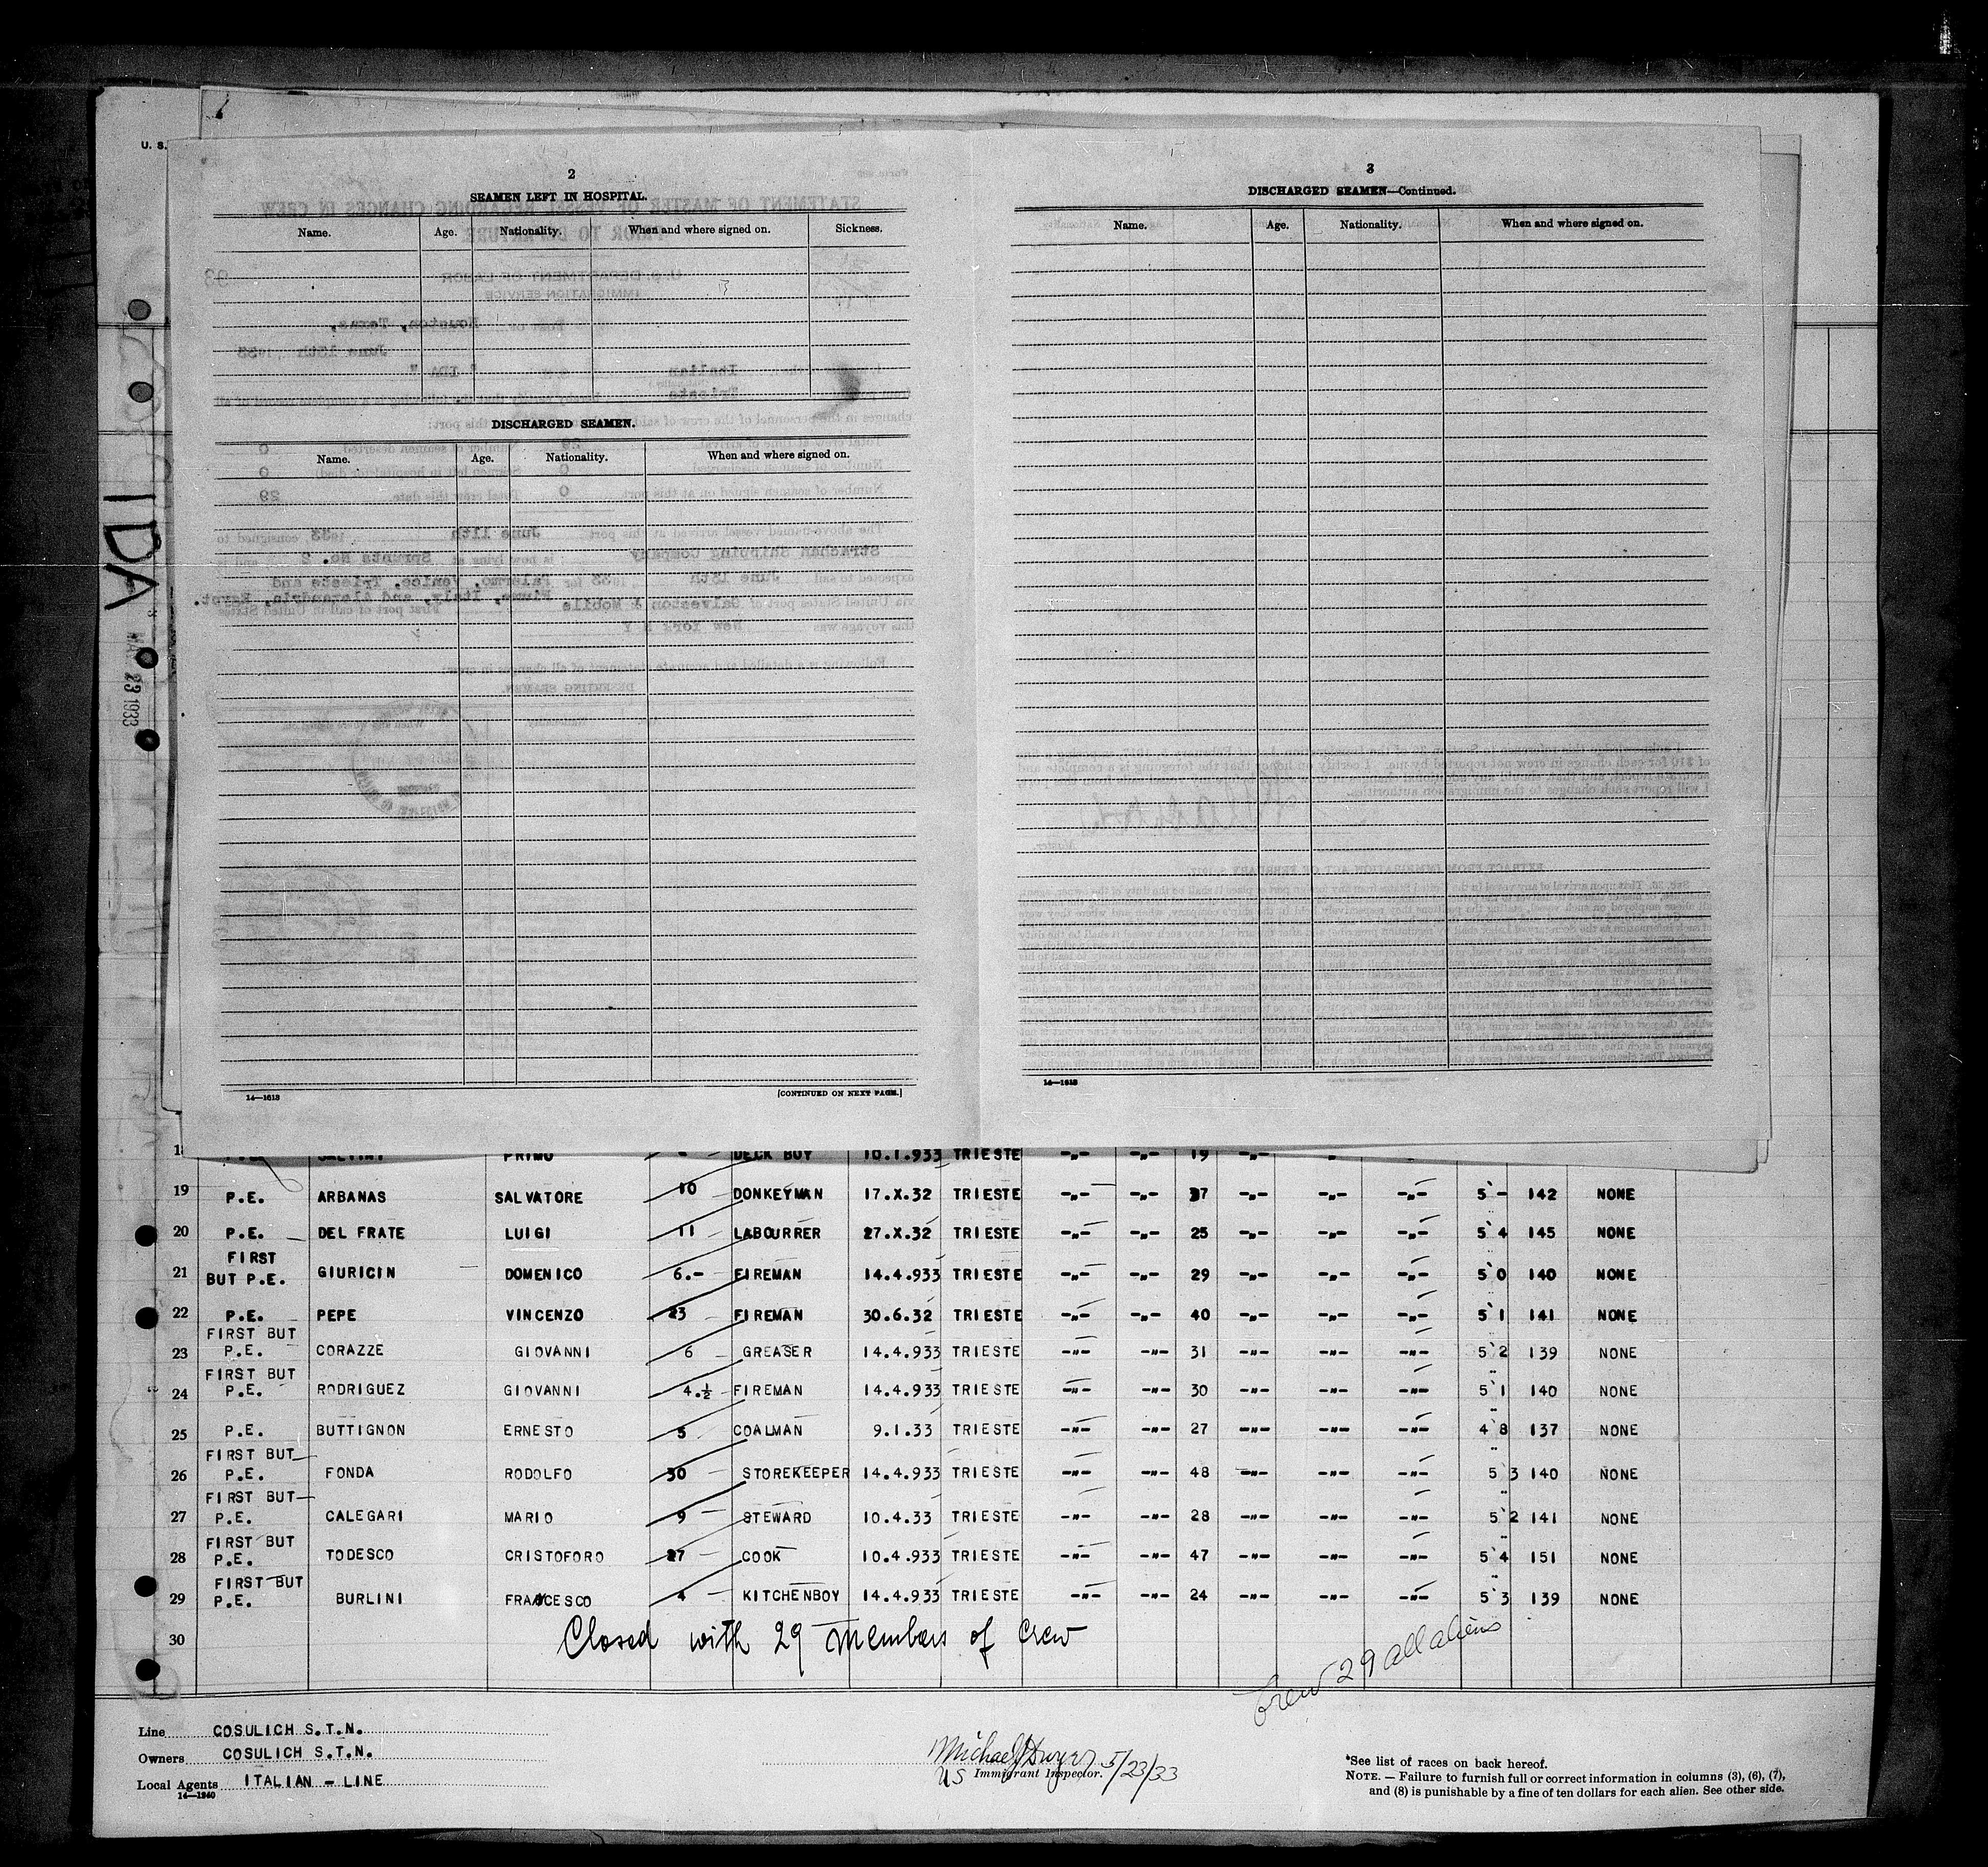 U. S.
2
SEAMEN LEFT IN HOSPITAL.
Name. Age. Nationality. When and where signed on. Sickness.
DISCHARGED SEAMEN.
Name. Age. Nationality. When and where signed on.
14—1613
[CONTINUED ON NEXT PAGE.]
3
DISCHARGED SEAMEN—Continued.
Name. Age. Nationality. When and where signed on.
14—1613
IDA
MAY 23 1933
PRIMO DECK BOY 10.1.933 TRIESTE -"- -"- 19 -"-
19 P.E. ARBANAS SALVATORE 10 DONKEYMAN 17.X.32 TRIESTE -"- -"- 37 -"- -"- -"- 5 - 142 NONE
20 P.E. DEL FRATE LUIGI 11 LABOURRER 27.X.32 TRIESTE -"- -"- 25 -"- -"- -"- 5 4 145 NONE
21 FIRST BUT P.E. GIURICIN DOMENICO 6.- FIREMAN 14.4.933 TRIESTE -"- -"- 29 -"- -"- -"- 5 0 140 NONE
22 P.E. PEPE VINCENZO 23 FIREMAN 30.6.32 TRIESTE -"- -"- 40 -"- -"- -"- 5 1 141 NONE
23 FIRST BUT P.E. CORAZZE GIOVANNI 6 GREASER 14.4.933 TRIESTE -"- -"- 31 -"- -"- -"- 5 2 139 NONE
24 FIRST BUT P.E. RODRIGUEZ GIOVANNI 4.½ FIREMAN 14.4.933 TRIESTE -"- -"- 30 -"- -"- -"- 5 1 140 NONE
25 P.E. BUTTIGNON ERNESTO 5 COALMAN 9.1.33 TRIESTE -"- -"- 27 -"- -"- -"- 4 8 137 NONE
26 FIRST BUT P.E. FONDA RODOLFO 30 STOREKEEPER 14.4.933 TRIESTE -"- -"- 48 -"- -"- -"- 5 3 140 NONE
27 FIRST BUT P.E. CALEGARI MARIO 9 STEWARD 10.4.33 TRIESTE -"- -"- 28 -"- -"- -"- 5 2 141 NONE
28 FIRST BUT P.E. TODESCO CRISTOFORO 27 COOK 10.4.933 TRIESTE -"- -"- 47 -"- -"- -"- 5 4 151 NONE
29 FIRST BUT P.E. BURLINI FRANCESCO 4 KITCHENBOY 14.4.933 TRIESTE -"- -"- 24 -"- -"- -"- 5 3 139 NONE
30 Closed with 29 members of Crew
Crew 29 all aliens
Line COSULICH S.T.N.
Owners COSULICH S.T.N.
Local Agents ITALIAN - LINE
14—1240
Michael J Dwyer 5/23/33
US Immigrant Inspector.
*See list of races on back hereof.
NOTE. — Failure to furnish full or correct information in columns (3), (6), (7),
and (8) is punishable by a fine of ten dollars for each alien. See other side.